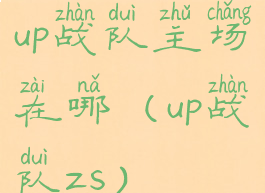 zhàn duì zhǔ chǎng
up战队主场
zài nǎ zhàn
在哪（up战
duì
队zs）